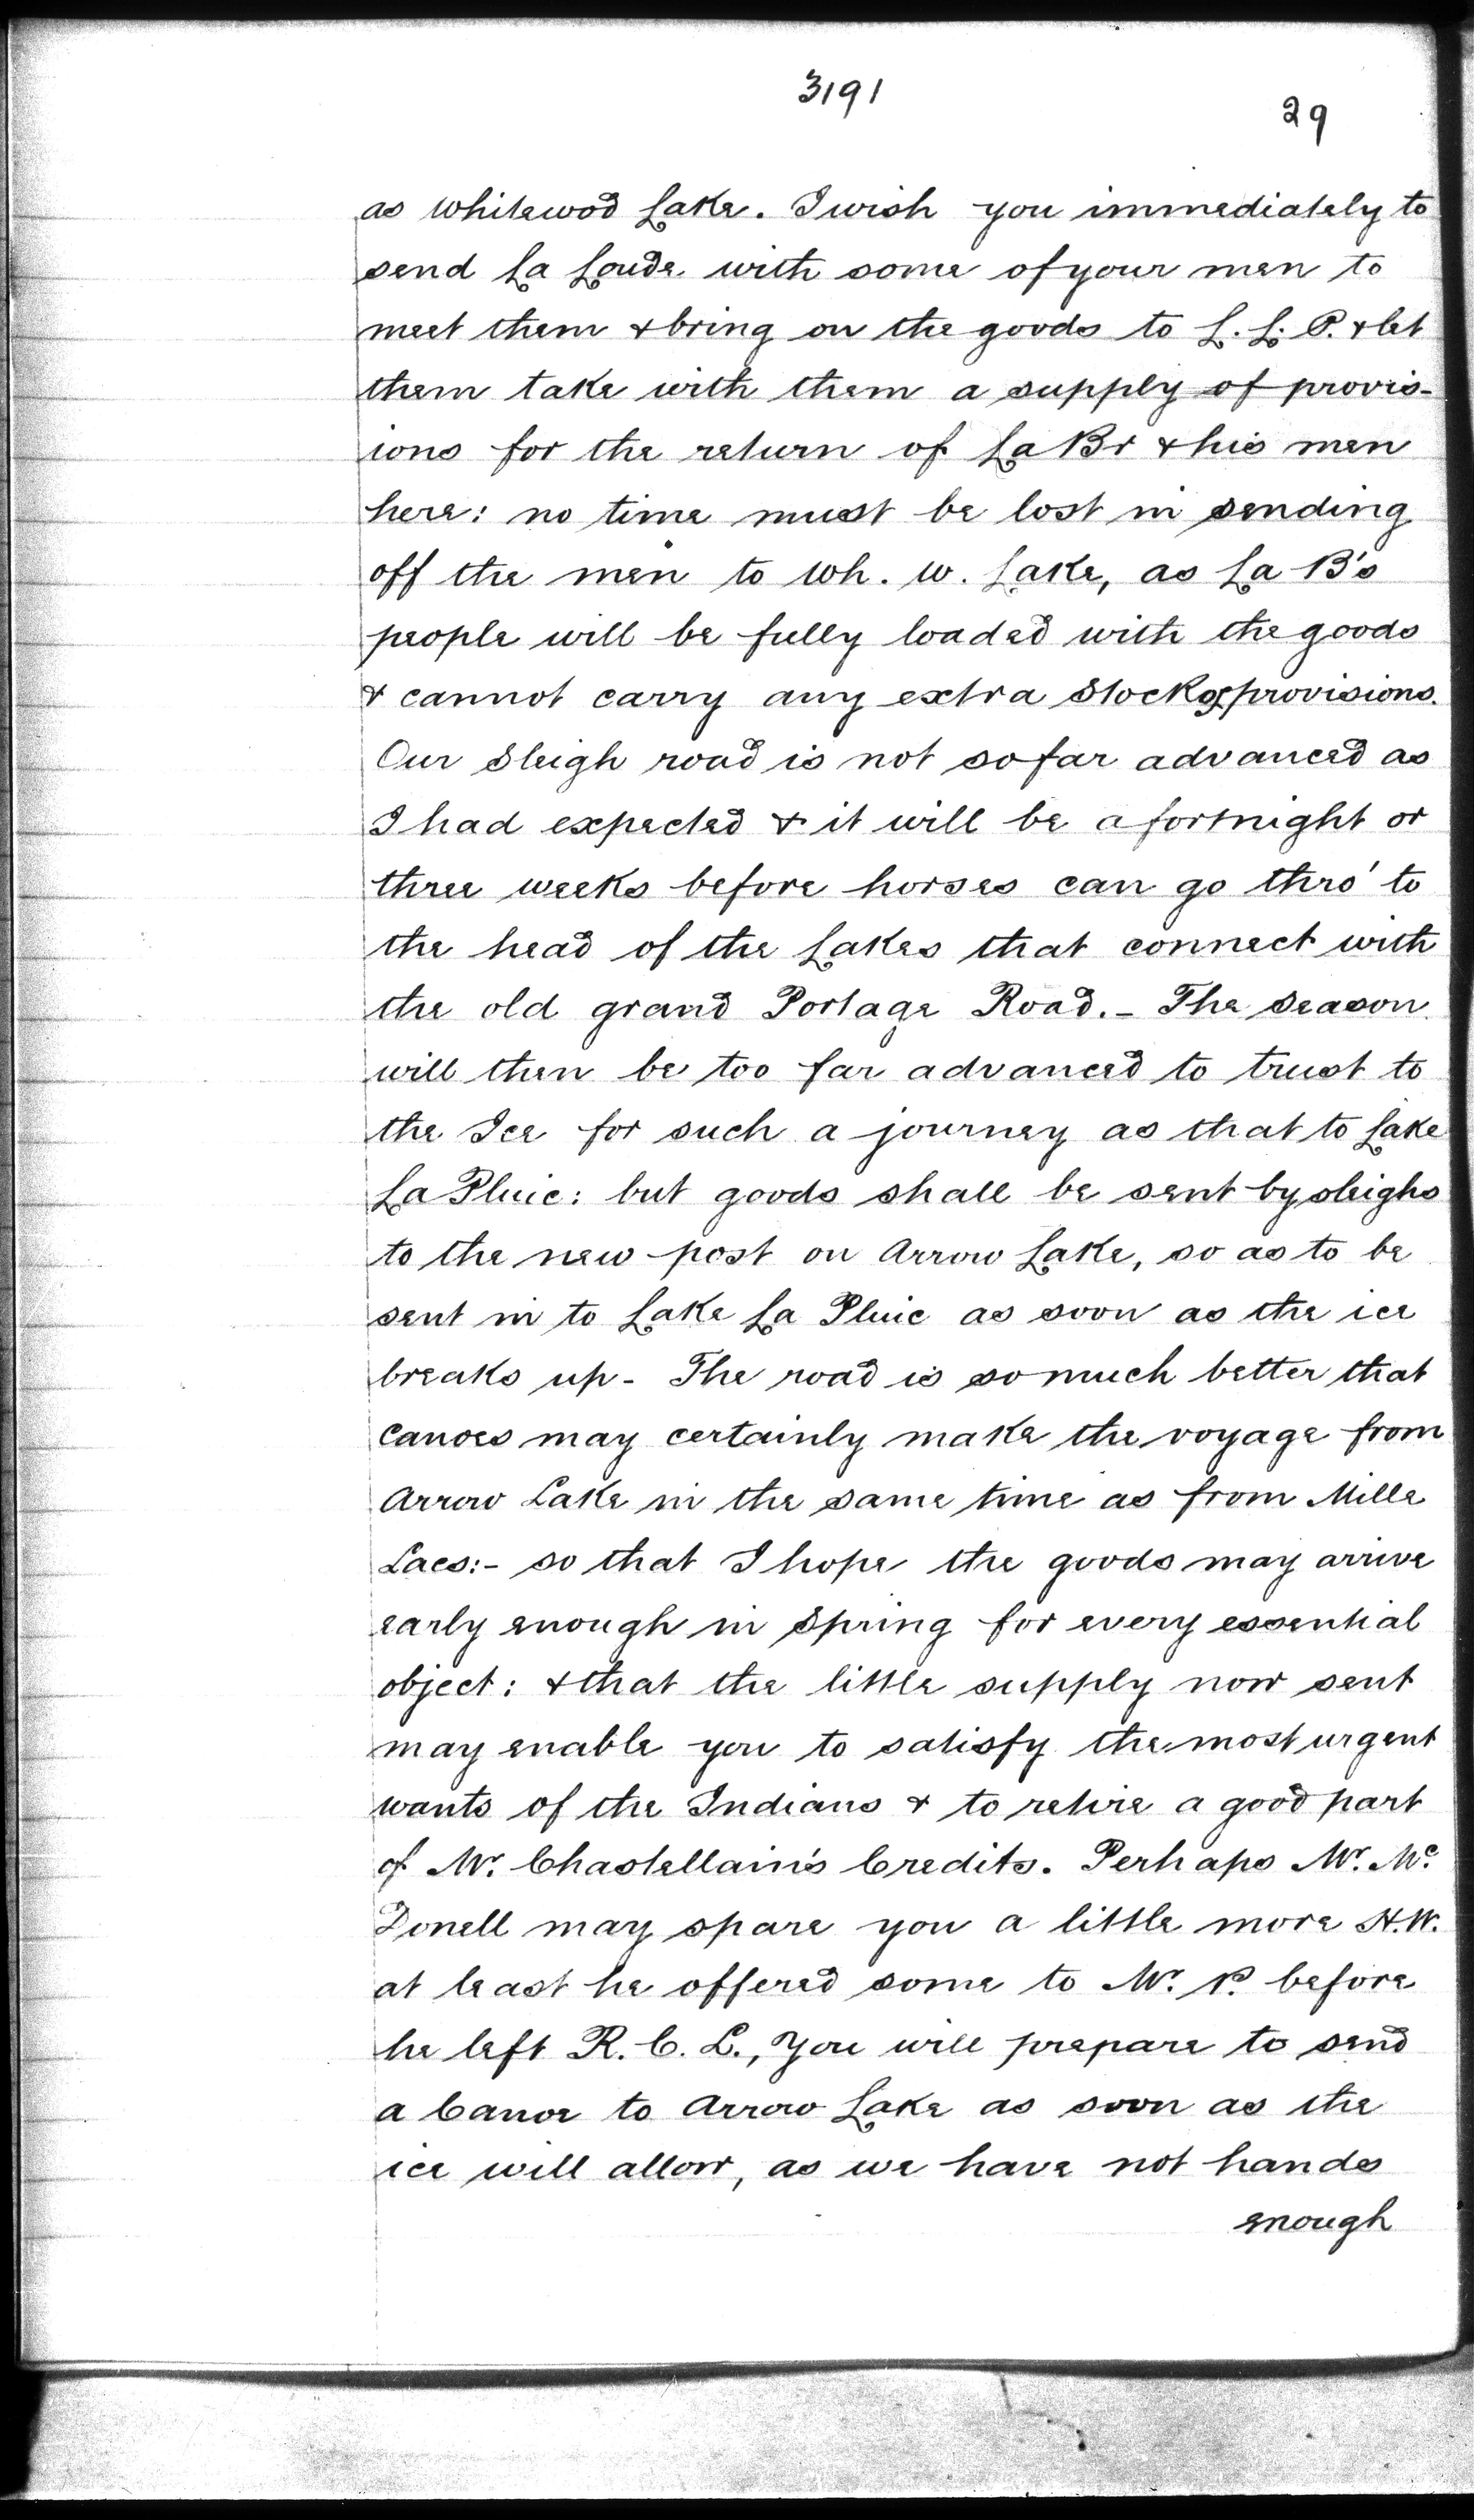 3191
29
as Whitewod Lake. I wish you immediately to
send La Loude with some of your men to
meet them & bring on the goods to L. L. P. & let
them take with them a supply of provis-
ions for the return of La Br & his men
here: no time must be lost in sending
off the men to Wh. W. Lake, as La B's
people will be fully loaded with the goods
& cannot carry any extra Stock of provisions.
Our Sleigh road is not so far advanced as
I had expected & it will be a fortnight or
three weeks before horses can go thro' to
the head of the Lakes that connect with
the old grand Portage Road. - The Season
will then be too far advanced to trust to
the Ice for such a journey as that to Lake
La Pluie: but goods shall be sent by sleighs
to the new post on Arrow Lake, so as to be
sent in to Lake La Pluie as soon as the ice
breaks up - The road is so much better that
Canoes may certainly make the voyage from
Arrow Lake in the same time as from Mille
Lacs:- so that I hope the goods may arrive
early enough in Spring for every essential
object: & that the little supply now sent
may enable you to satisfy the most urgent
wants of the Indians & to retire a good part
of Mr. Chastellain's Credits. Perhaps Mr. Mc
Donell may spare you a little more H.W.
at least he offered some to Mr. P. before
he left R. C. L., You will prepare to send
a Canoe to Arrow Lake as soon as the
ice will allow, as we have not hands
enough